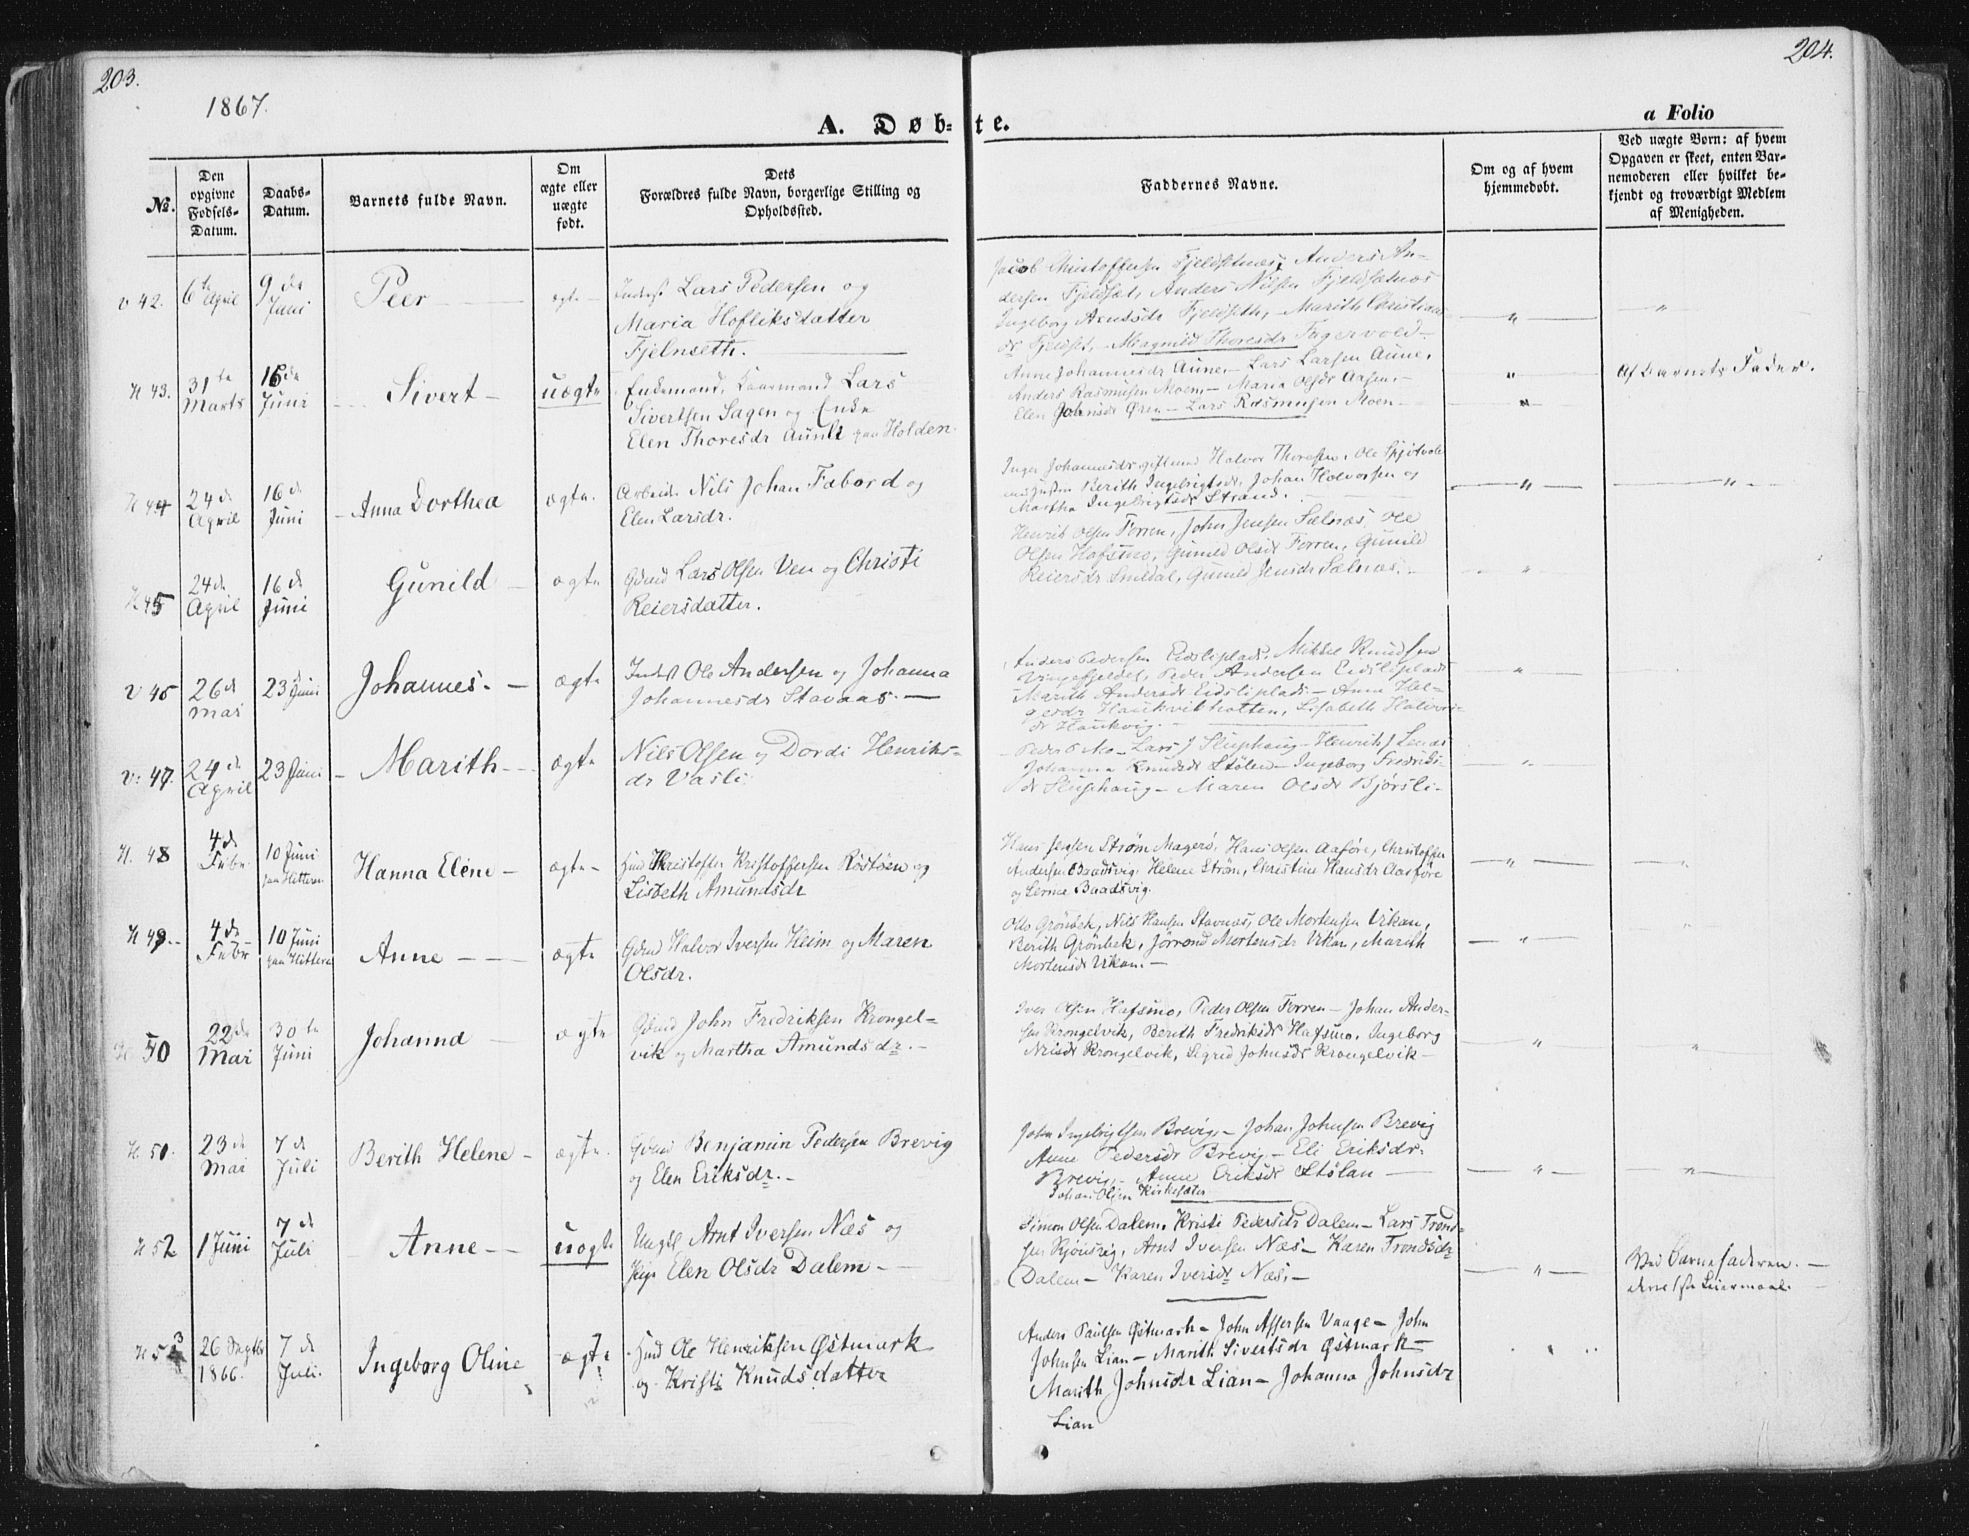 203.
204.
1867.
A. Døb-te.
a Folio
No.
Den opgivne Fødsels-Datum.
Daabs-Datum.
Barnets fulde Navn.
Om ægte eller uægte født.
Dets Forældres fulde Navn, borgerlige Stilling og Opholdssted.
Faddernes Navne.
Om og af hvem hjemmedøbt.
Ved uægte Børn: af hvem Opgaven er skeet, enten Barnemoderen eller hvilket bekjendt og troværdigt Medlem af Menigheden.
v 42. 6te April 9de Juni Peer ægte
Inderst Lars Pedersen og
Maria Hofliksdatter
Fjelnseth.
Jacob Christoffersen Fjeldsetnæs, Anders An-
dersen Fjeldsæt, Anders Nilsen Fjeldsætnæs
Ingeborg Arntsdr Fjeldseth, Marith Christians
dr Fjeldset, Magnild Thoresdr Fagervold
H 43. 31te Marts 16de Juni Sivert uægte
Enkemand, Kaarmand Lars
Sivertsen Sagen og Enke
Elen Thoresdr Aune paa Holden.
Anne Johannesdr Aune. Lars Larsen Aune,
Anders Rasmusen Moen. Maria Olsdr Aasen.
Elen Johnsdr Øren Lars Rasmusen Moen
Af Barnets Fader.
H 44 24de April 16de Juni Anna Dorthea ægte.
Arbeids. Nils Johan Fabord og
Elen Larsdr.
Inger Johannesdr gift med Halvor Thoresen, Ole Spjøtvold
Berith Ingebrigtsdr, Johan Halvorsen og
Martha Ingebrigtsdr Strand.
H 45 24de April 16de Juni Gunild ægte
Gdmd Lars Olsen Ven og Christi
Reiersdatter.
Henrik Olsen Forren, John Jensen Sælnæs, Ole
Olsen Hafsmo, Gunild Olsdr Forren, Gunild
Reiersdr Smldal, Gunild Jensdr Sælnæs.
v 46 26de Mai 23 Juni Johannes. ægte
Indst Ole Andersen og Johanna
Johannesdr Stavaas.
Anders Pedersen Eidsliplads. Mikkel Knudsen
Vingefjeldet, Peder Andersen Eidsliplads
Marith Andersdr Eidsliplads Anne Hel-
gesdr Haukvikhatten, Lisabeth Halvors-
dr Haukvig.
v: 47. 24de April 23 Juni Marith ægte
Nils Olsen og Dordi Henriks-
dr Vasli.
Peder O Mo Lars J Sluphaug Henrik J
Johanna Knudsdr Stølen Ingeborg Fredriks-
dr Sluphaug Maren Olsdr Bjørsli
H. 48 4de Febr. 10 Juni paa Hitteren Hanna Elene ægte
Hmd Khristoffer Kristoffersen Røstøen og
Lisbeth Amundsdr
Hans Jensen Strøm Magerø, Hans Olsen Aaføre, Christoffer
Andersen Baadsvig, Helene Strøm, Christine Hansdr Aarføre
og Lerna Baadsvig.
H 49. 4de Febr 10 Juni paa Hittern Anne ægte
Gdmd Halvor Iversen Heim og Maren
Olsdr.
Otto Grønbek, Nils Hansen Stavnæs, Ole Mortensen Vikan,
Berith Grønbek, Jørrond Mortensdr Vikan, Marith
Mortensdr Vikan.
H 50 22de Mai 30te Juni Johanna ægte
Gdmd John Fredriksen Krongel-
vik og Martha Amundsdr.
Iver Olsen Hafsmo, Peder Olsen Forren Johan Ander-
sen Krongelvik, Berith Fredriksdr Hafsmo, Ingeborg
Nilsdr Krongelvik, Sigrid Johnsdr Krongelvik
H 51. 23de Mai 7de Juli Berith Helene ægte.
Gdmd Benjamin Pedersen Brevig
og Elen Eriksdr.
John Ingebrigtsen Brevig Johan Johnsen Brevig
Anne Pedersdr Brevig Eli Eriksdr.
Brevig Anne Eriksdr Stølan
Johan Olsen Kirkesæter
H 52 1 Juni 7de Juli Anne uægte
Ungk Arnt Iversen Næs og
Pige Elen Olsdr Dalem
Simon Olsen Dalem, Kristi Pedersdr Dalem Lars Trond-
sen Arnt Iversen Næs Karen Trondsdr
Dalem Karen Iversdr Næs.
Ved Barnefaderen.
Leiermaal.
H 53 26 Septbr 1866. 7de Juli. Ingeborg Oline ægte
Hmd Ole Henriksen Østmark
og Kristi Knudsdatter
Anders Paulsen Østmark John Assersen Vaage John
Johnsen Lian Marith Sivertsdr Østmark
Marith Johnsdr Lian Johanna Johnsdr
Lian